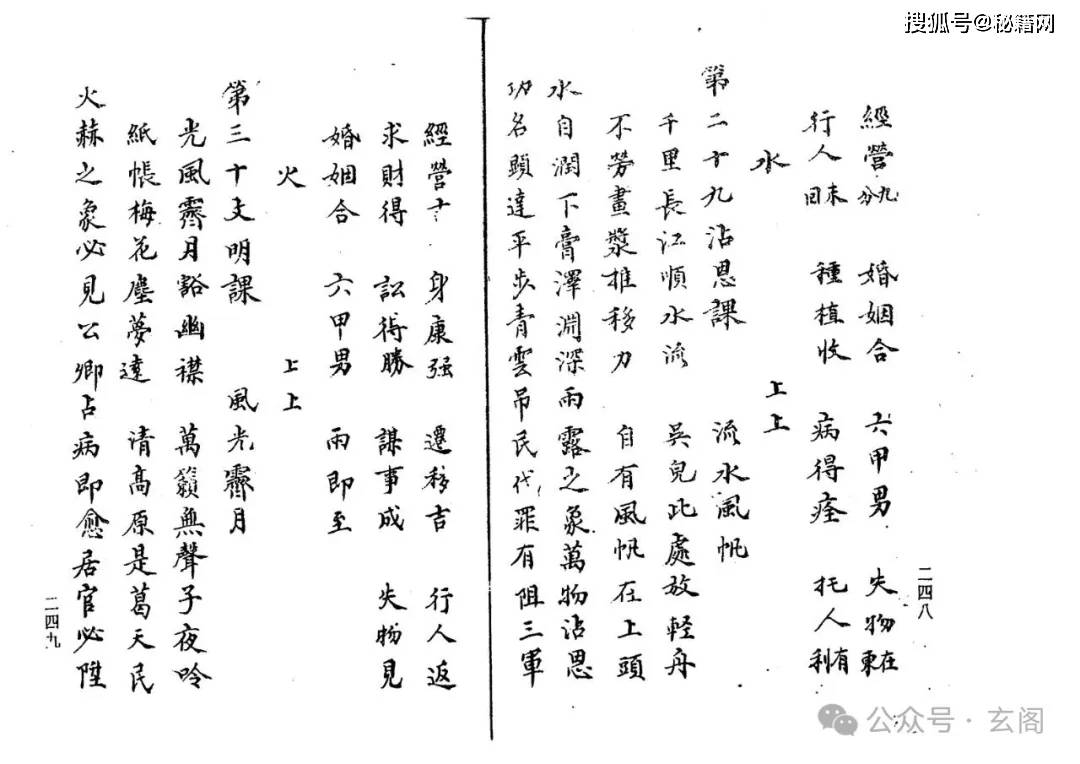 搜狐号@秘籍网
經營九分 婚姻合 六甲男 失物在東
行人未回 種植收 病得痊 托人有利
水 上上
第二十九沾恩課 流水風帆
千里長江順水流 吳兒此處放輕舟
不勞畫槳推移力 自有風帆在上頭
水自潤下膏澤淵深雨露之象萬物沾恩
功名顯達平步青雲吊民代罪有阻三軍
二四八
經營十 身康强 遷移吉 行人返
求財得 訟得勝 謀事成 失物見
婚姻合 六甲男 雨即至
火 上上
第三十文明課 風光霽月
光風霽月豁幽襟 萬籟無聲子夜吟
紙帳梅花塵夢達 清高原是葛天民
火赫之象必見公卿占病即愈居官必陞
二四九
公众号·玄阁